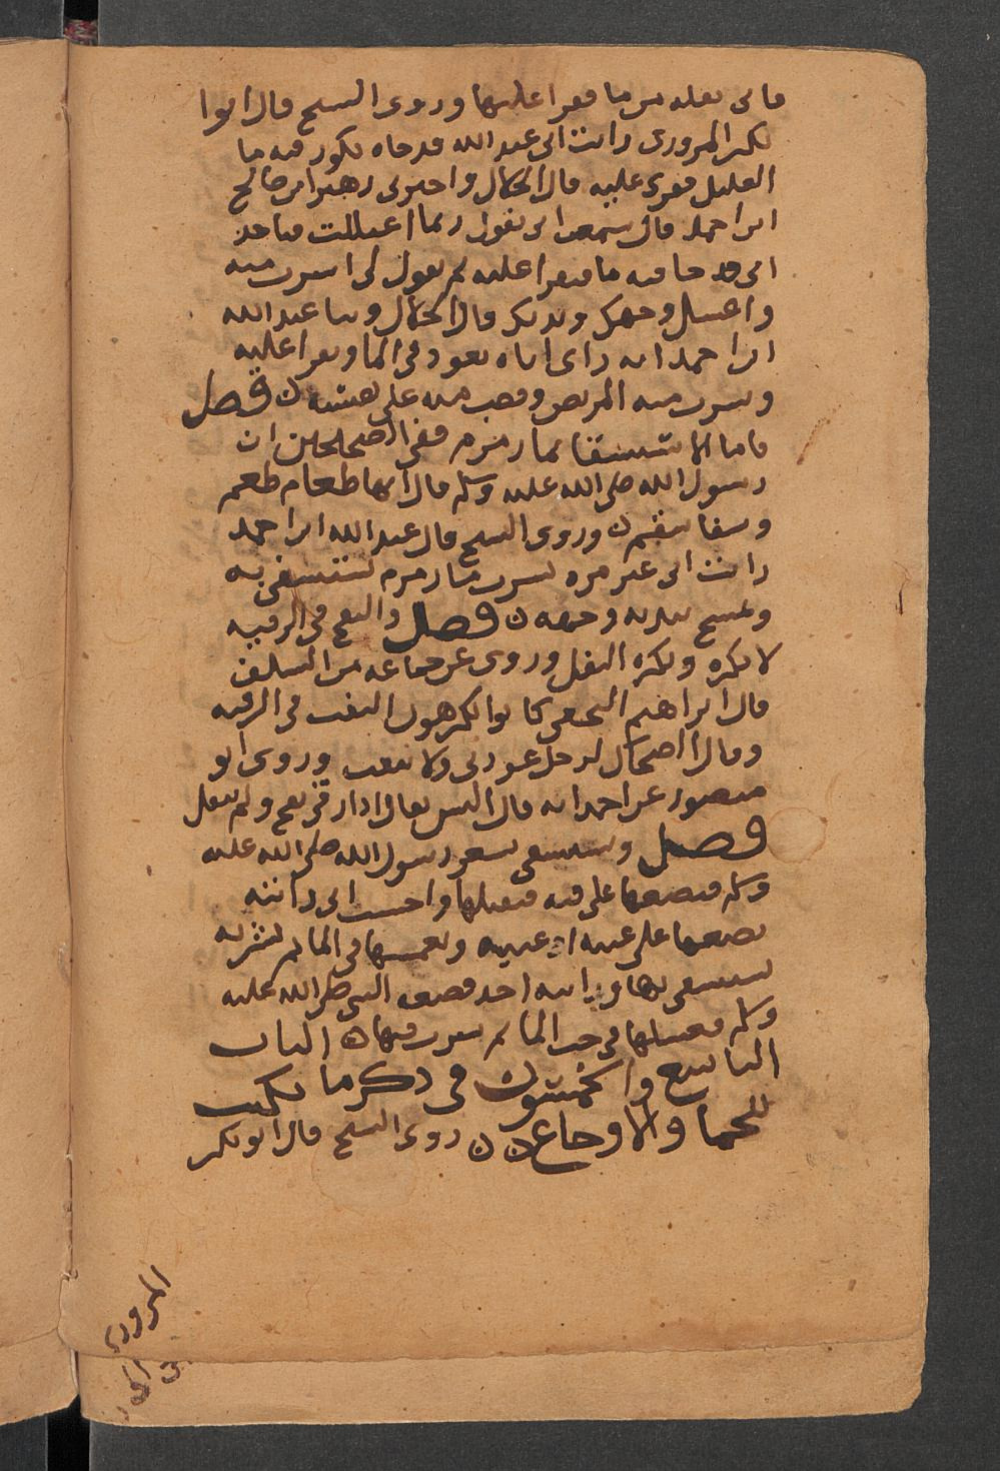 فاتى بقلة من ما فقرا عليها وروى الشيخ قال ابو
بكر المروزي رايت ابي عبد الله قد جاه بكوز فيه ما
العليل فقرى عليه قال الخلال واخبرني زهير ابن صالح
ابن احمد قال سمعت ابي يقول ربما اعتللت فياخذ
ابي قدحا فيه ما فيقرا عليه ثم يقول لي اشرب منه
واغسل وجهك ويديك قال الخلال وثنا عبد الله
ابن احمد انه راى اباه يعوذ في الما ويقرا عليه
ويشرب منه المريض ويصب منه على نفسه ن فصل
فاما الاستشفا بما زمزم ففي الصحيحين ان
رسول الله صلى الله عليه وسلم قال انها طعام طعم
وشفا سقم ن وروى الشيخ قال عبد الله ابن احمد
رايت ابي غير مره يشرب من ما زمزم يستشفي به
ويمسح يديه وجهه ن فصل والنفخ في الرقيه
لا يكره ويكره التفل وروى عن جماعه من السلف
قال ابراهيم النخعي كانوا يكرهون النفث في الرقيه
وقال الضحاك لرجل عوذني ولا تنفث وروى ابو
منصور عن احمد انه قال اليس يقال اذا رقى نفخ ولم يتفل
فصل ويستشفى بشعر رسول الله صلى الله عليه
وسلم فيضعها على فيه فيقبلها واحسب اني رايته
يضعها على عينيه ويغمسها في الما ثم يشربه
يستشفي بها ورايته اخذ قصعه النبي صلى الله عليه
وسلم فغسلها في جب الما ثم شرب فيها ن الباب
التاسع والخمسون في ذكر ما يكتب
للحما والاوجاع ن ن روى الشيخ قال ابو بكر
المروزي